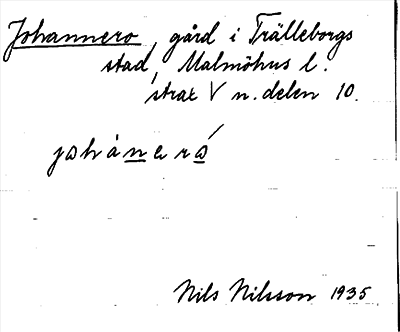 Johannero, gård i Trälleborgs
stad, Malmöhus l.
strax V n. delen 10.
johåneró
Nils Nilsson 1935